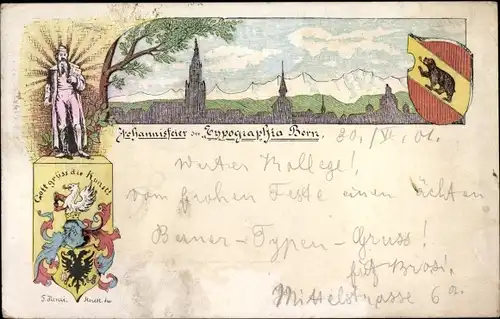 Johannisfeier der Typographia Bern, 30./VI. 01.
Gott grüss die Kunst!
Werter Kollege!
vom frohen Feste einen ächten
Berner-Typen-Gruss!
Brosi.
Mittelstrasse 6a.